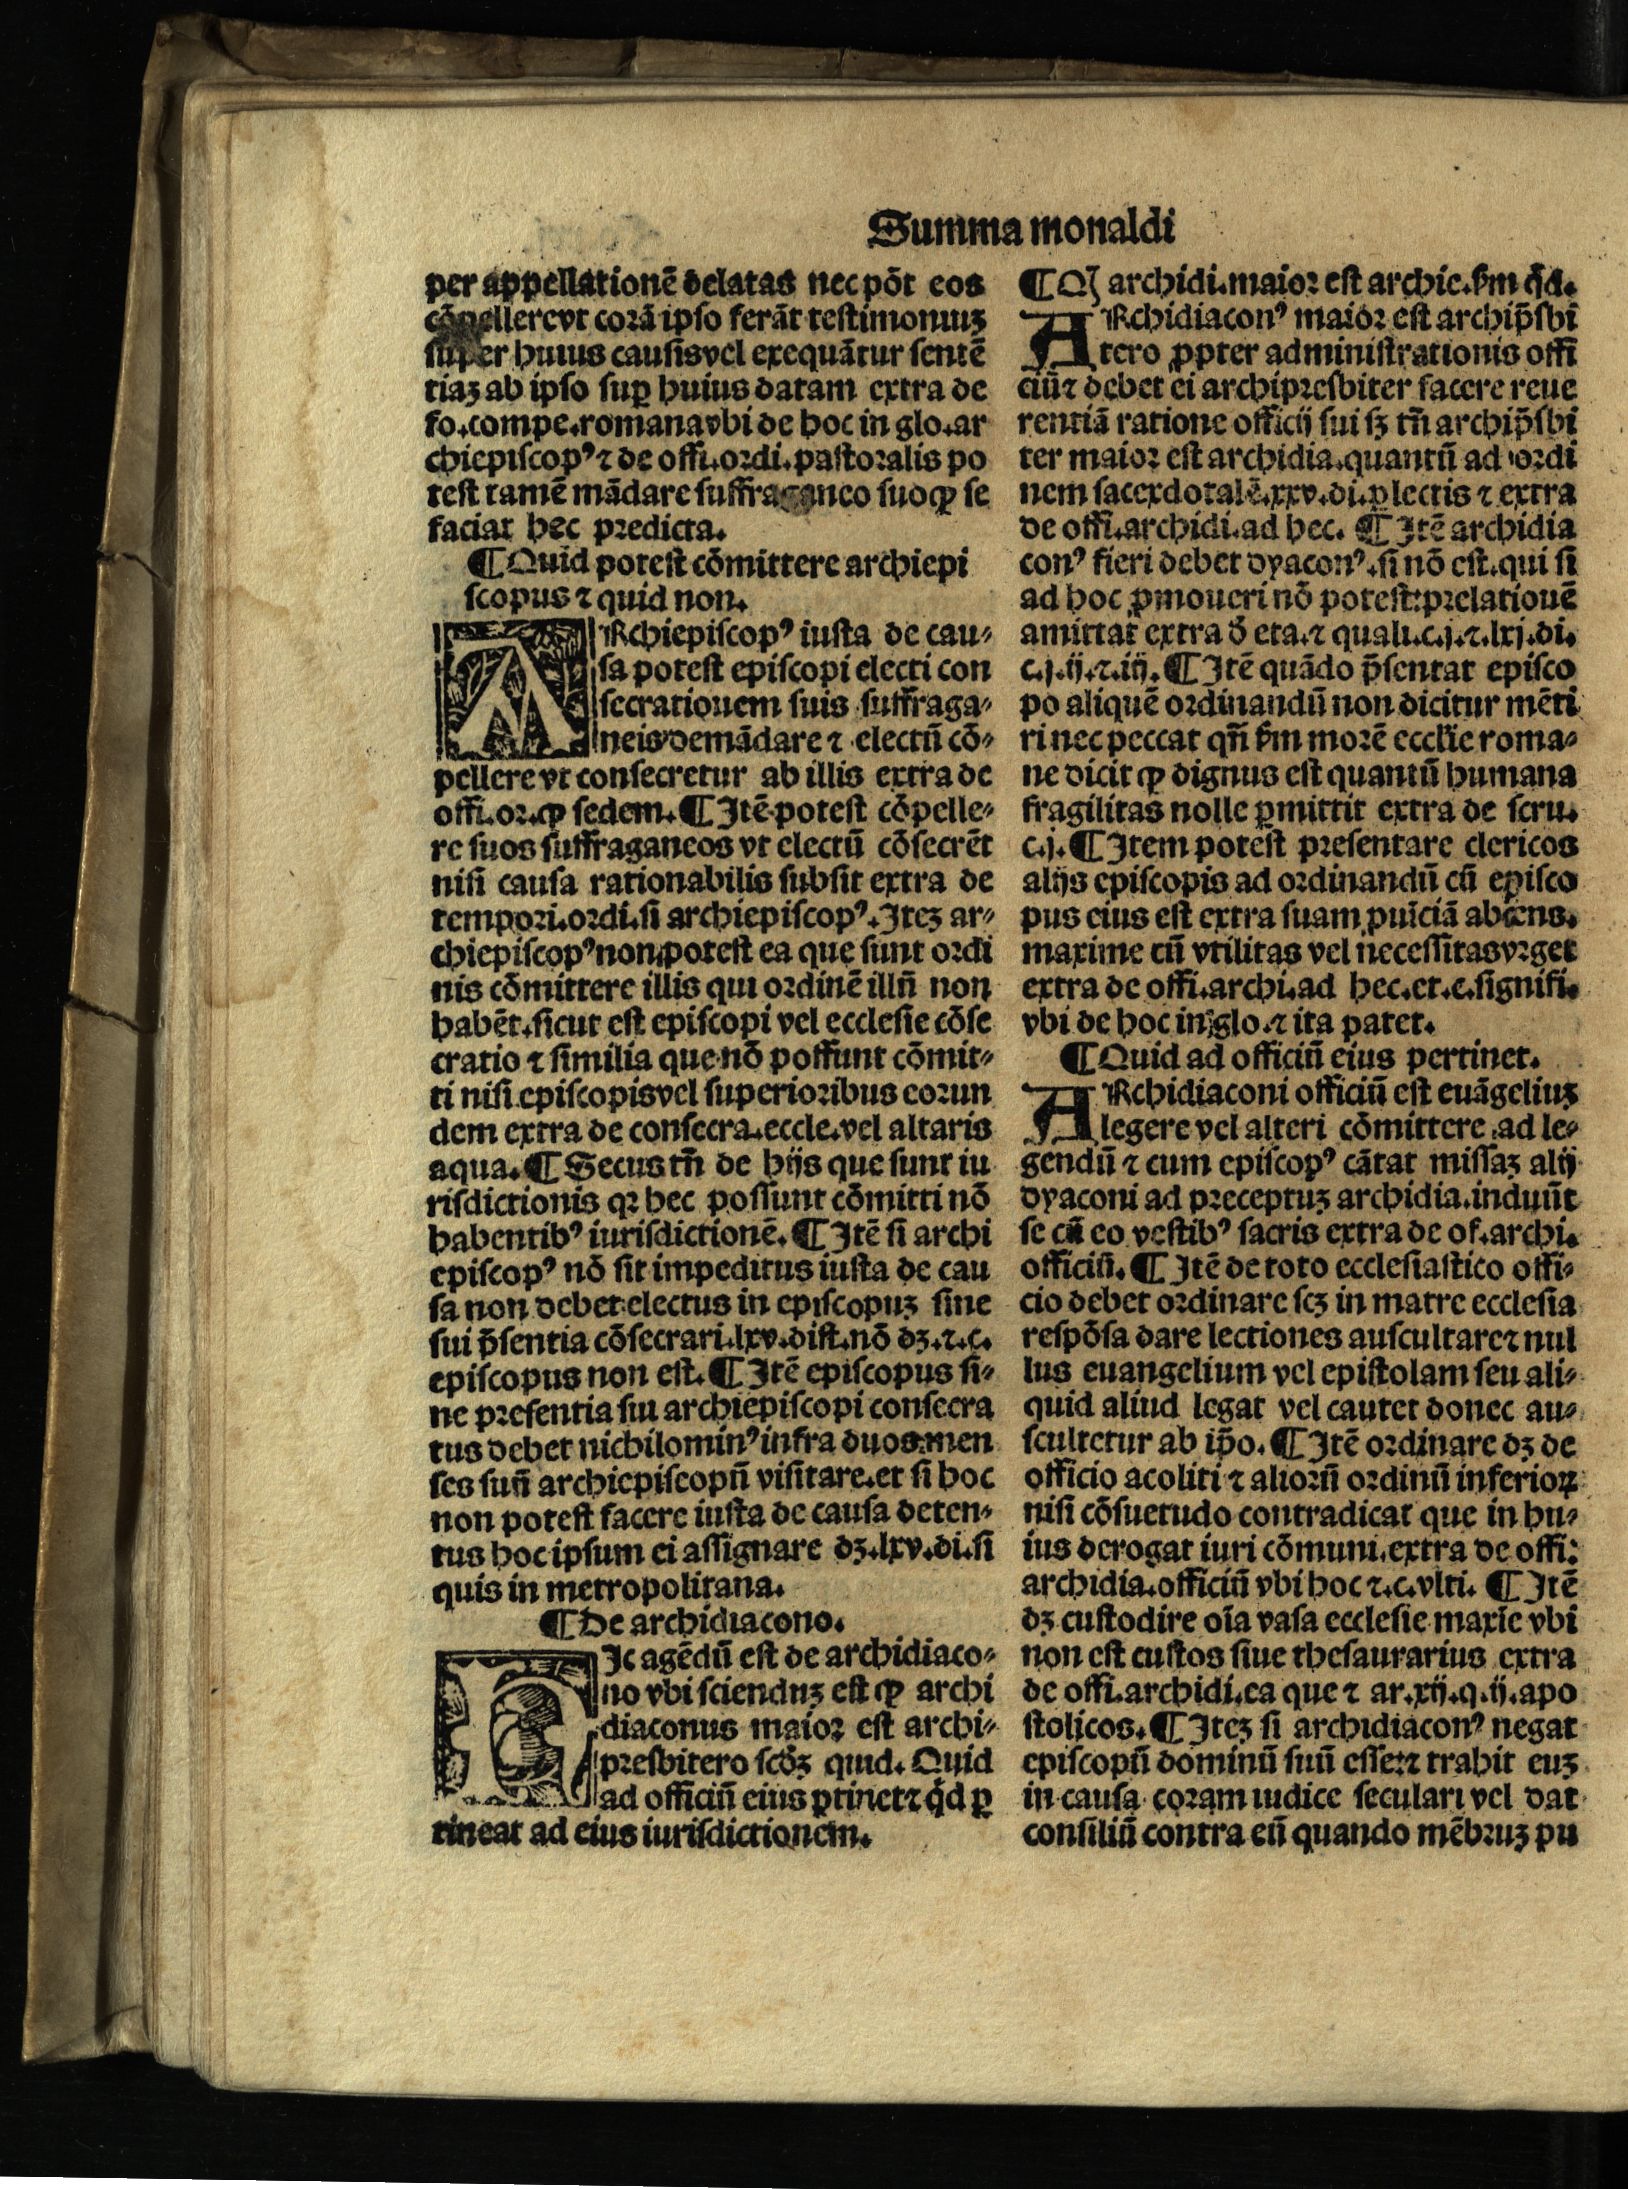 Summa monaldi
per appellationē delatas nec pōt eos
cōpellere vt corā ipso ferāt testimoniuȝ
super huius causis vel exequātur sentē
tiaȝ ab ipso suꝑ huius datam extra de
fo.compe.romana vbi de hoc in glo.ar
chiepiscopꝰ ⁊ de offi.ordi.pastoralis po
test tamē mādare suffraganeo suo ꝙ se
faciat hec predicta.
¶ Quid potest cōmittere archiepi
scopus ⁊ quid non.
ARchiepiscopꝰ iusta de cau-
sa potest episcopi electi con
secrationem suis suffraga-
neis demādare ⁊ electū cō-
pellere vt consecretur ab illis extra de
offi.or.ꝙ sedem. ¶ Itē potest cōpelle-
re suos suffraganeos vt electū cōsecrēt
nisi causa rationabilis subsit extra de
tempori.ordi.si archiepiscopꝰ. Iteȝ ar-
chiepiscopꝰ non potest ea que sunt ordi
nis cōmittere illis qui ordinē illū non
habēt.sicut est episcopi vel ecclesie cōse
cratio ⁊ similia que nō possunt cōmit-
ti nisi episcopis vel superioribus eorun
dem extra de consecra.eccle.vel altaris
aqua. ¶ Secus tn̄ de hijs que sunt iu
risdictionis qꝛ hec possunt cōmitti nō
habentibꝰ iurisdictionē. ¶ Itē si archi
episcopꝰ nō sit impeditus iusta de cau
sa non debet electus in episcopuȝ sine
sui p̄sentia cōsecrari.lxv.dist.nō dȝ.⁊.c.
episcopus non est. ¶ Itē episcopus si-
ne presentia sui archiepiscopi consecra
tus debet nichilominꝰ infra duos men
ses suū archiepiscopū visitare.et si hoc
non potest facere iusta de causa deten-
tus hoc ipsum ei assignare dȝ.lxv.di.si
quis in metropolitana.
¶ De archidiacono.
HIc agēdū est de archidiaco-
no vbi scienduȝ est ꝙ archi
diaconus maior est archi-
presbitero scd̄ȝ quid. Quid
ad officiū eius ꝑtinet ⁊ qͥd ꝑ
tineat ad eius iurisdictionem.
¶ Qȝ archidi.maior est archie.ẜm qͥd.
ARchidiaconꝰ maior est archip̄sbi
tero ꝓpter administrationis offi
ciū ⁊ debet ei archipresbiter facere reue
rentiā ratione officij sui sȝ tn̄ archip̄sbi
ter maior est archidia.quantū ad ordi
nem sacerdotalē.xxv.di.ꝑlectis ⁊ extra
de offi.archidi.ad hec. ¶ Itē archidia
conꝰ fieri debet dyaconꝰ.si nō est.qui si
ad hoc ꝓmoueri nō potest:prelationē
amittat extra ō eta.⁊ quali.c.j.⁊.lxj.di.
c.j.ij.⁊.iij. ¶ Itē quādo p̄sentat episco
po aliquē ordinandū non dicitur mēti
ri nec peccat qn̄ ẜm morē eccl̄ie roma-
ne dicit ꝙ dignus est quantū humana
fragilitas nolle ꝑmittit extra de scru.
c.j. ¶ Item potest presentare clericos
alijs episcopis ad ordinandū cū episco
pus eius est extra suam ꝓuīciā absens.
maxime cū vtilitas vel necessitas vrget
extra de offi.archi.ad hec.et.c.signifi.
vbi de hoc in glo.⁊ ita patet.
¶ Quid ad officiū eius pertinet.
ARchidiaconi officiū est euāgeliuȝ
legere vel alteri cōmittere ad le-
gendū ⁊ cum episcopꝰ cātat missaȝ alij
dyaconi ad preceptuȝ archidia.induūt
se cū eo vestibꝰ sacris extra de of.archi.
officiū. ¶ Itē de toto ecclesiastico offi-
cio debet ordinare scȝ in matre ecclesia
respōsa dare lectiones auscultare ⁊ nul
lus euangelium vel epistolam seu ali-
quid aliud legat vel cantet donec au-
scultetur ab ip̄o. ¶ Itē ordinare dȝ de
officio acoliti ⁊ aliorū ordinū inferioꝝ
nisi cōsuetudo contradicat que in hu-
ius derogat iuri cōmuni.extra de offi:
archidia.officiū vbi hoc ⁊.c.vlti. ¶ Itē
dȝ custodire oīa vasa ecclesie maxīe vbi
non est custos siue thesaurarius extra
de offi.archidi.ea que ⁊ ar.xij.q.ij.apo
stolicos. ¶ Iteȝ si archidiaconꝰ negat
episcopū dominū suū esse:⁊ trahit euȝ
in causa coram iudice seculari vel dat
consiliū contra eū quando mēbruȝ pu